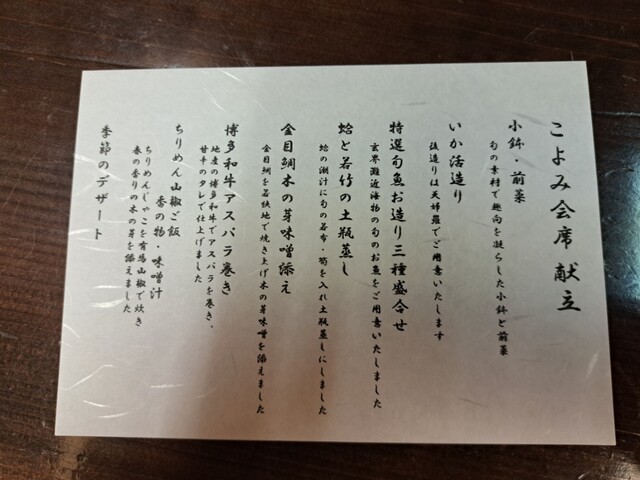 こよみ会席 献立
小鉢・前菜
旬の素材で趣向を凝らした小鉢と前菜
いか活造り
後造りは天婦羅でご用意いたします
特選旬魚お造り三種盛合せ
玄界灘近海物の旬のお魚をご用意いたしました
蛤と若竹の土瓶蒸し
蛤の潮汁に旬の若布・筍を入れ土瓶蒸しにしました
金目鯛木の芽味噌添え
金目鯛を若狭地で焼き上げ木の芽味噌を添えました
博多和牛アスパラ巻き
地産の博多和牛でアスパラを巻き、
甘辛のタレで仕上げました
ちりめん山椒ご飯
香の物・味噌汁
ちりめんじゃこを有馬山椒で炊き
春の香りの木の芽を添えました
季節のデザート